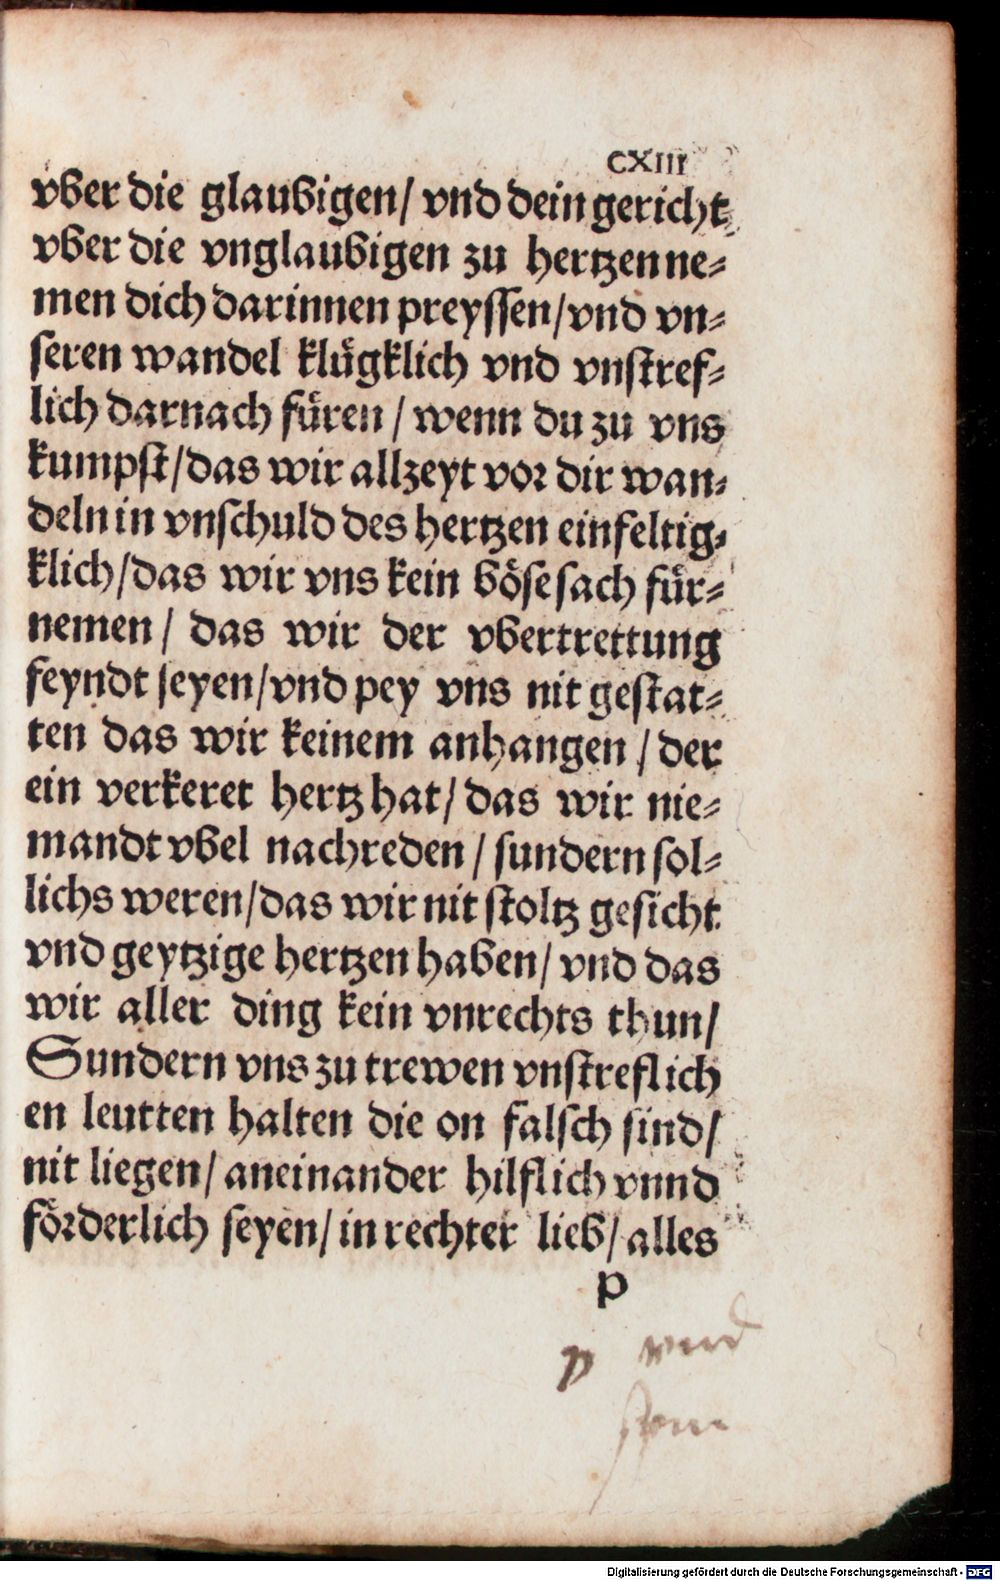 CXIII
vber die glaubigen/ vnd dein gericht
vber die vnglaubigen zu hertzen ne⸗
men dich darinnen preyssen/vnd vn⸗
seren wandel klůgklich vnd vnstref⸗
lich darnach fůren / wenn du zu vns
kumpst/das wir allzeyt vor dir wan⸗
deln in vnschuld des hertzen einfeltig⸗
klich/das wir vns kein böse sach für⸗
nemen/ das wir der vbertrettung
feyndt seyen/vnd pey vns nit gestat⸗
ten das wir keinem anhangen / der
ein verkeret hertz hat/ das wir nie⸗
mandt vbel nachreden / sundern sol⸗
lichs weren/das wir nit stoltz gesicht
vnd geytzige hertzen haben/ vnd das
wir aller ding kein vnrechts thun/
Sundern vns zu trewen vnstreflich
en leutten halten die on falsch sind/
nit liegen/ aneinander hilflich vnnd
förderlich seyen/ in rechter lieb/ alles
p
p vnd
Digitalisierung gefördert durch die Deutsche Forschungsgemeinschaft - DFG